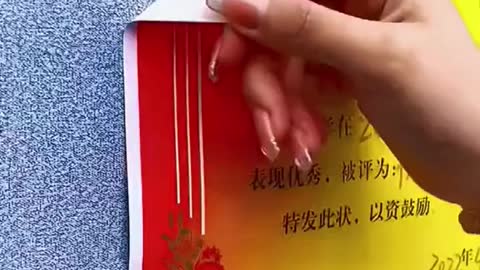 在2
表现优秀，被评为：
特发此状，以资鼓励
2022年